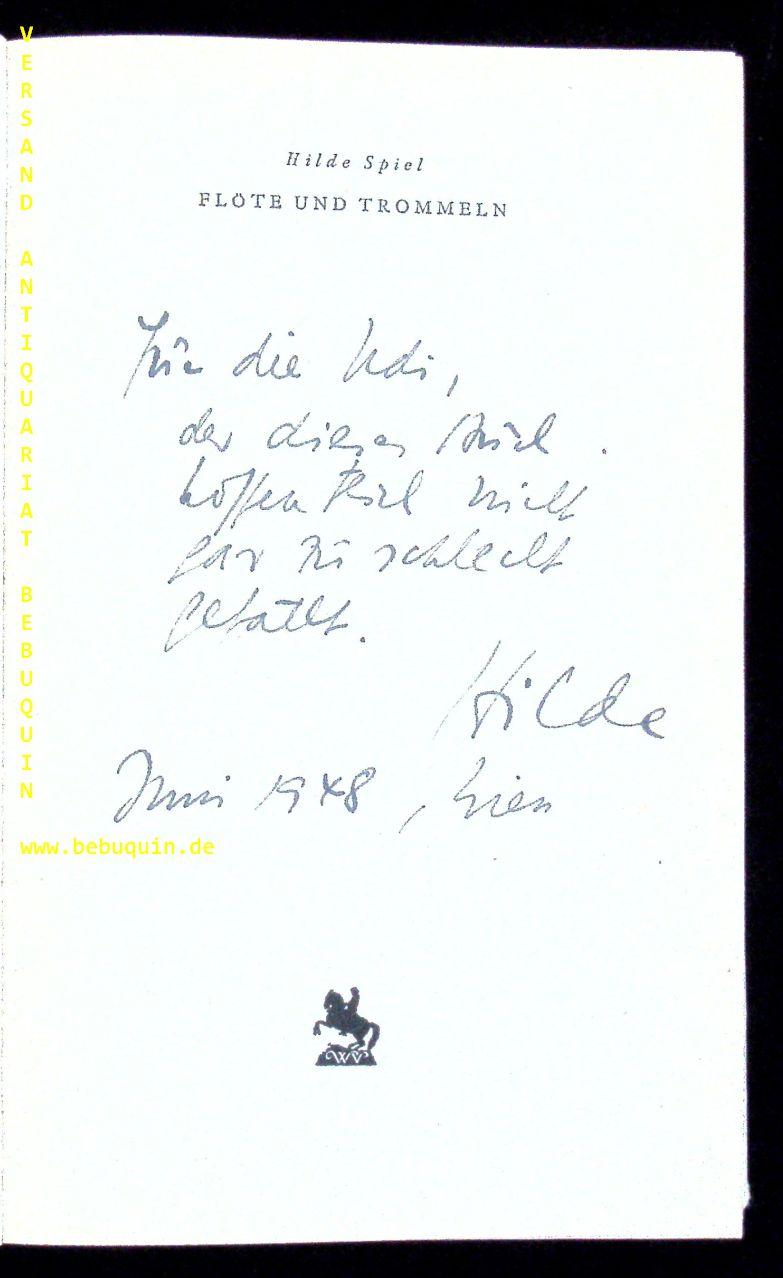 VERSAND ANTIQUARIAT BEBUQUIN
www.bebuquin.de
Hilde Spiel
FLÖTE UND TROMMELN
Für die
der dieses Buch
hoffentlich nicht
gar zu schlecht
gefällt.
Hilde
Juni 1948, Wien
WV